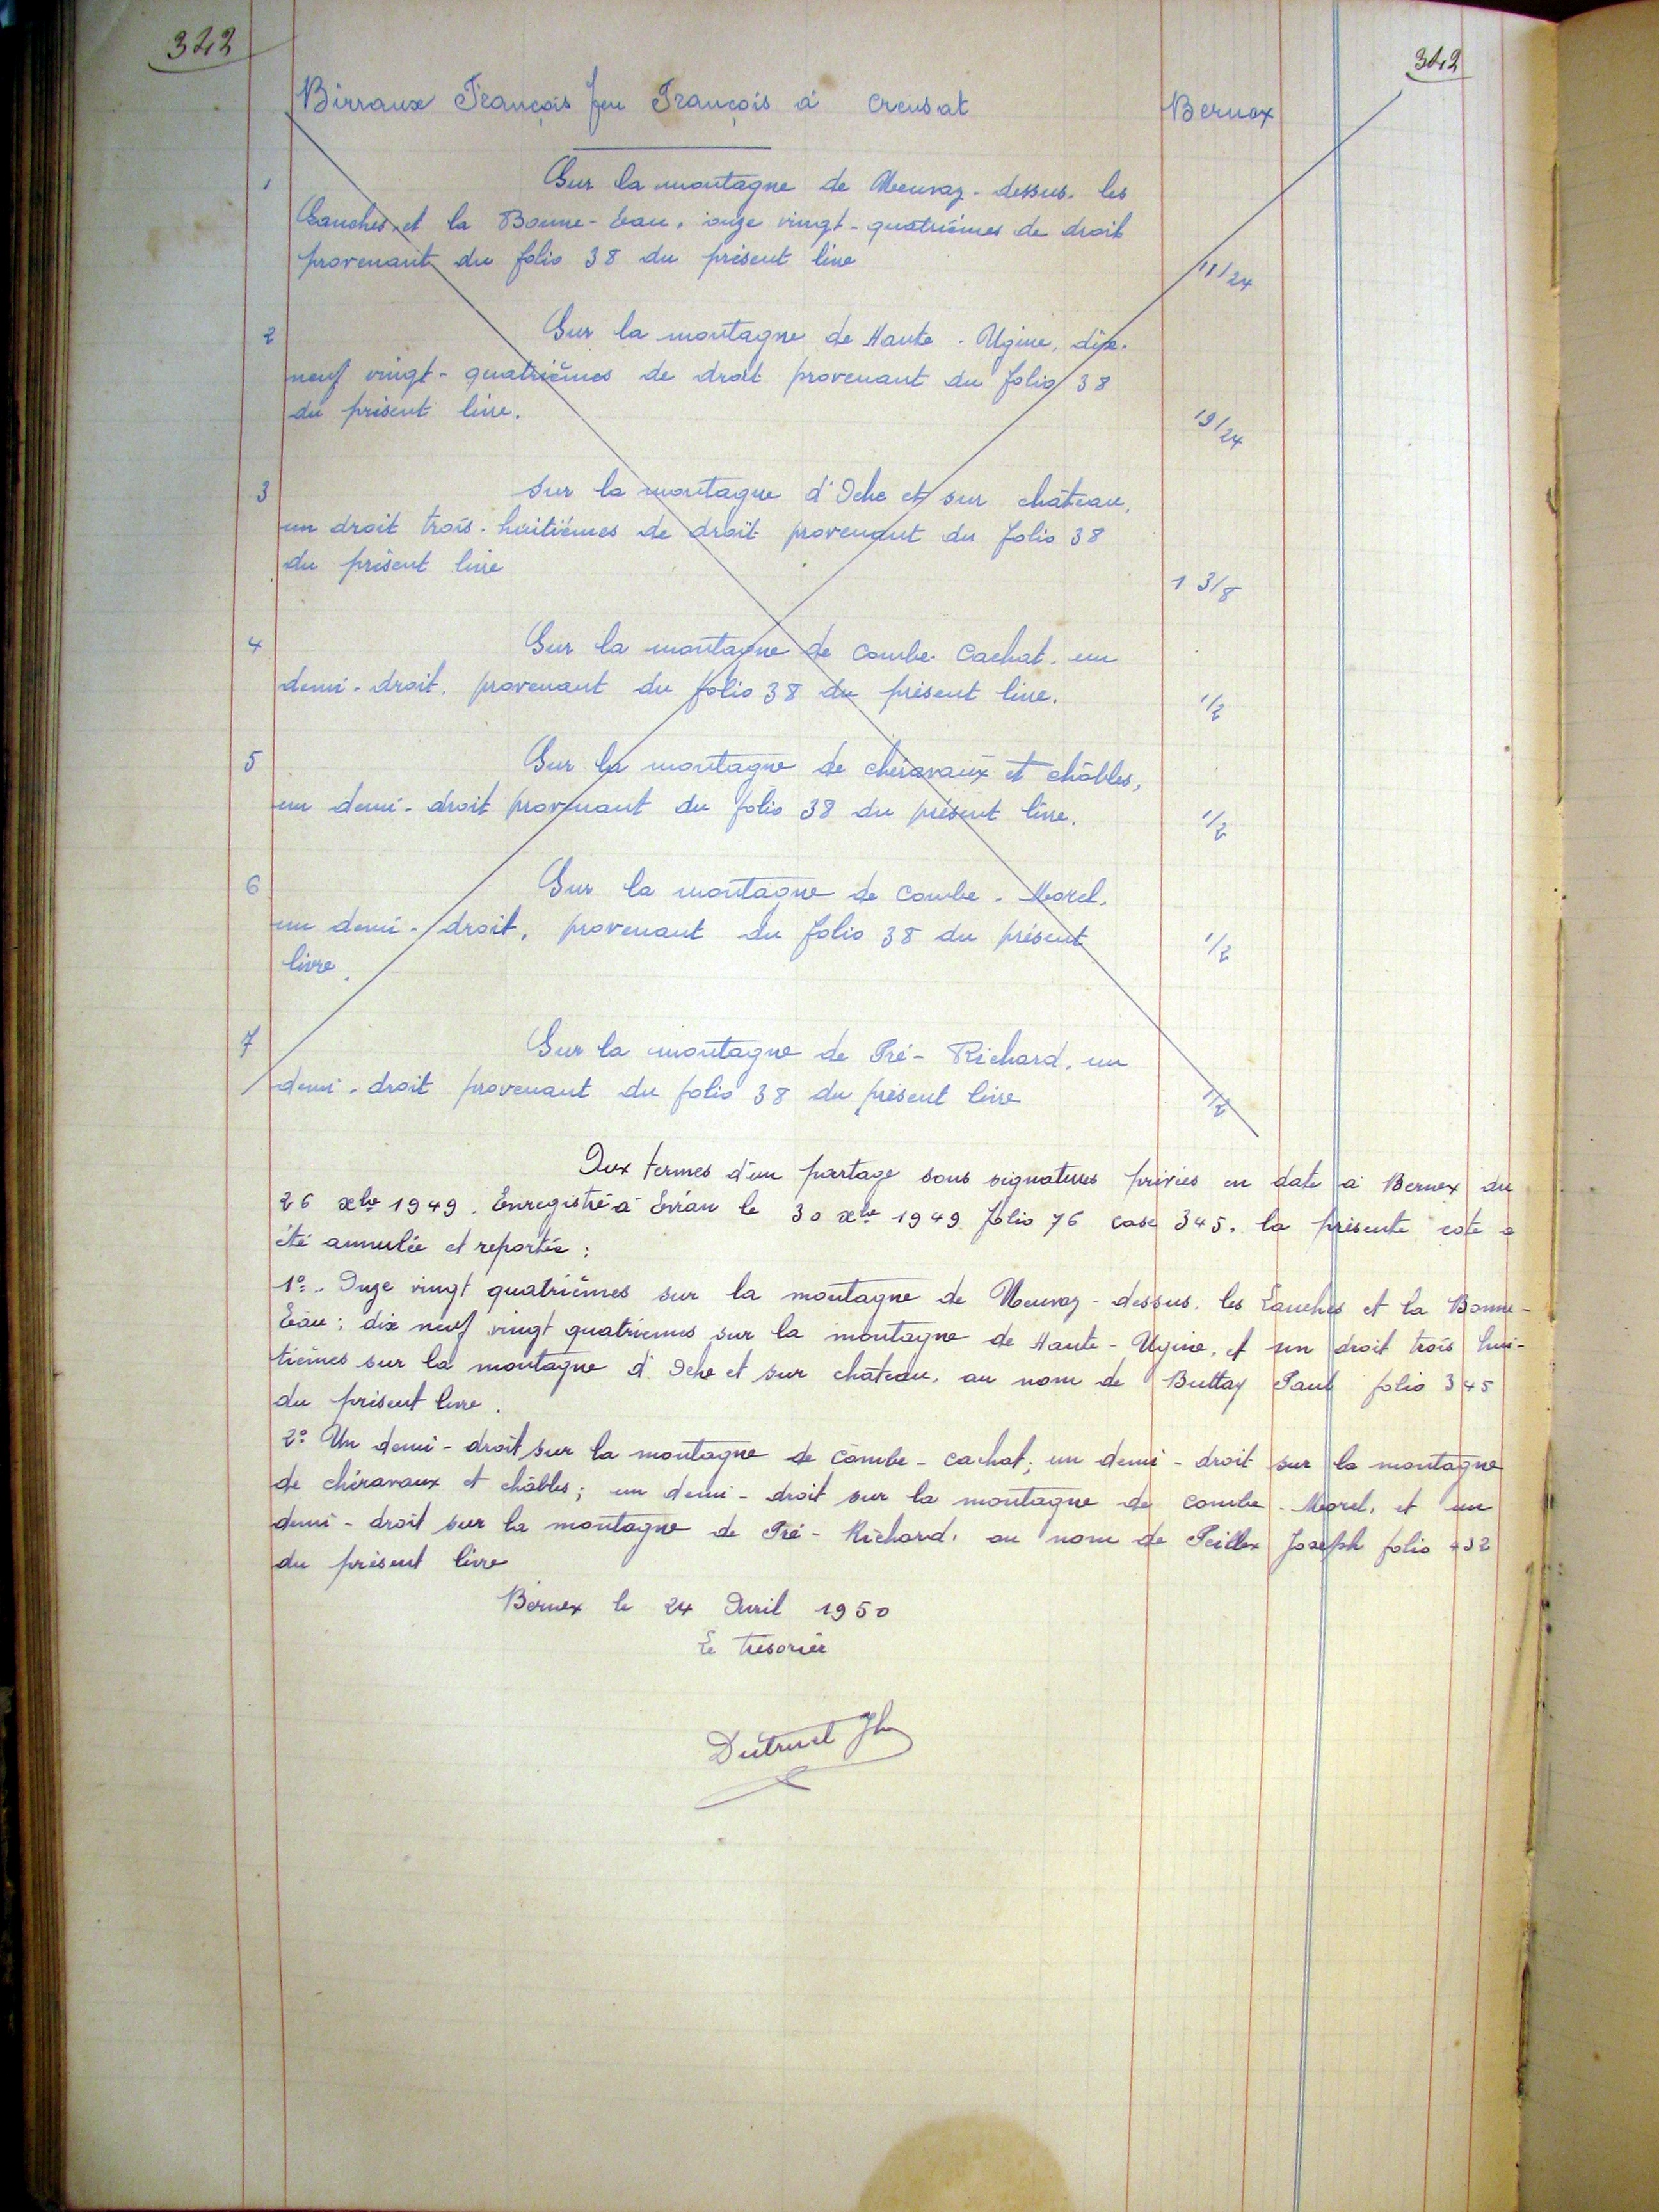 342
342
Birraux François feu François à Creusat
Bernex
1
Sur la montagne de Neuvaz-dessus. les
Lanches et la Bonne-Eau, onze vingt-quatrièmes de droit
provenant du folio 38 du présent livre
11/24
2
Sur la montagne de Haute-Ugine, dix-
neuf vingt-quatrièmes de droit provenant du folio 38
du présent livre.
19/24
3
Sur la montagne d'Oche et sur château,
un droit trois-huitièmes de droit provenant du folio 38
du présent livre
1 3/8
4
Sur la montagne de Combe-Cachat, un
demi-droit, provenant du folio 38 du présent livre.
1/2
5
Sur la montagne de chéravaux et châbles,
un demi-droit provenant du folio 38 du présent livre.
1/2
6
Sur la montagne de Combe-Morel,
un demi-droit, provenant du folio 38 du présent
livre.
1/2
7
Sur la montagne de Pré-Richard, un
demi-droit provenant du folio 38 du présent livre
1/2
Aux termes d'un partage sous signatures privées en date à Bernex du
26 xbre 1949. Enregistré à Evian le 30 xbre 1949 folio 76 case 345. la présente cote a
été annulée et reportée :
1º.. Onze vingt quatrièmes sur la montagne de Neuvaz-dessus. les Lanches et la Bonne-
Eau; dix neuf vingt quatriemes sur la montagne de Haute-Ugine, et un droit trois hui-
tièmes sur la montagne d'Oche et sur château, au nom de Buttay Paul folio 345
du présent livre.
2º Un demi-droit sur la montagne de Combe-Cachat; un demi-droit sur la montagne
de chéravaux et châbles; un demi-droit sur la montagne de combe-Morel, et un
demi-droit sur la montagne de Pré-Richard, au nom de Peillex Joseph folio 432
du présent livre
Bernex le 24 Avril 1950
Le trésorier
Dutruel Jh